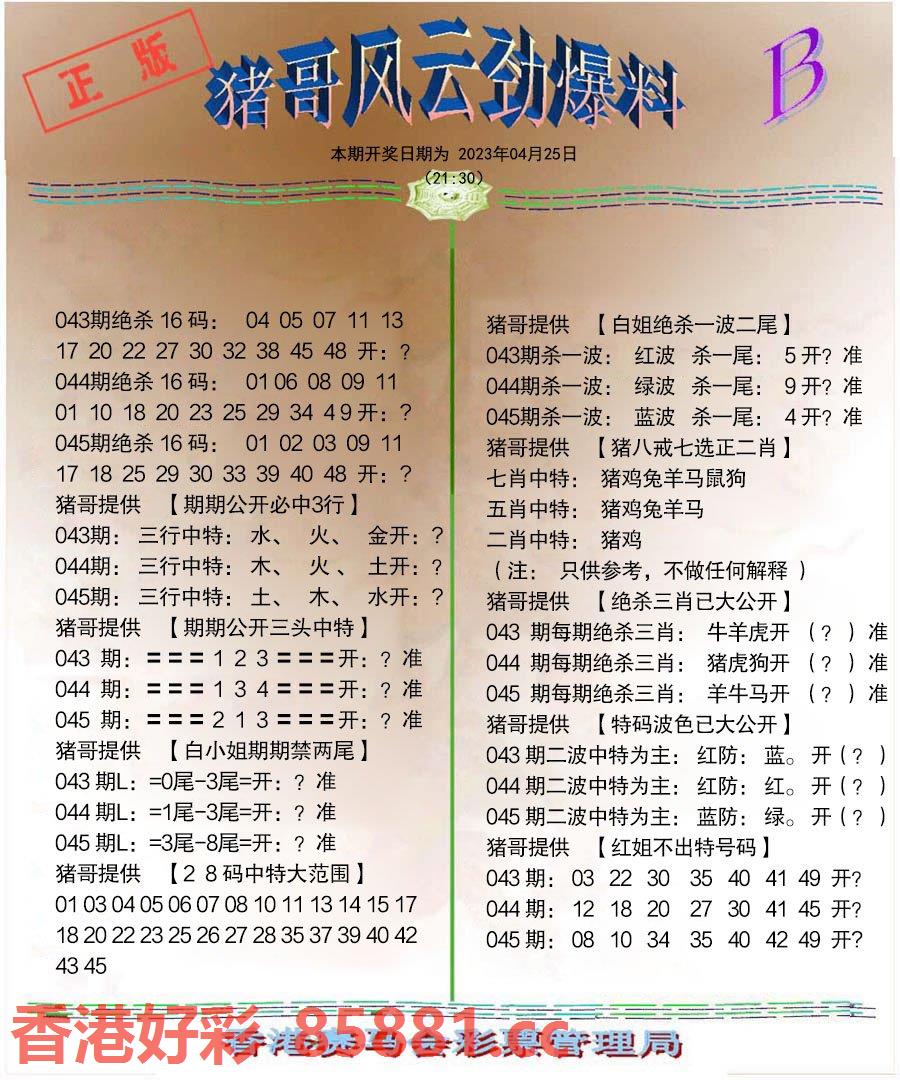 正版
猪哥风云劲爆料
B
本期开奖日期为 2023年04月25日
(21:30)
043期绝杀16码： 04 05 07 11 13
17 20 22 27 30 32 38 45 48 开：?
044期绝杀16码： 01 06 08 09 11
01 10 18 20 23 25 29 34 49开：?
045期绝杀16码： 01 02 03 09 11
17 18 25 29 30 33 39 40 48 开：?
猪哥提供 【期期公开必中3行】
043期： 三行中特：水、 火、 金开：?
044期： 三行中特：木、 火、 土开：?
045期： 三行中特：土、 木、 水开：?
猪哥提供 【期期公开三头中特】
043 期：===1 2 3===开：? 准
044 期：===1 3 4===开：? 准
045 期：===2 1 3===开：? 准
猪哥提供 【白小姐期期禁两尾】
043期L：=0尾-3尾=开：? 准
044期L：=1尾-3尾=开：? 准
045期L：=3尾-8尾=开：? 准
猪哥提供 【28码中特大范围】
01 03 04 05 06 07 08 10 11 13 14 15 17
18 20 22 23 25 26 27 28 35 37 39 40 42
43 45
猪哥提供 【白姐绝杀一波二尾】
043期杀一波： 红波 杀一尾： 5开? 准
044期杀一波： 绿波 杀一尾： 9开? 准
045期杀一波： 蓝波 杀一尾： 4开? 准
猪哥提供 【猪八戒七选正二肖】
七肖中特： 猪鸡兔羊马鼠狗
五肖中特： 猪鸡兔羊马
二肖中特： 猪鸡
（注： 只供参考，不做任何解释 ）
猪哥提供 【绝杀三肖已大公开】
043 期每期绝杀三肖： 牛羊虎开 （? ）准
044 期每期绝杀三肖： 猪虎狗开 （? ）准
045 期每期绝杀三肖： 羊牛马开 （? ）准
猪哥提供 【特码波色已大公开】
043期二波中特为主：红防：蓝。开(? )
044期二波中特为主：红防：红。开(? )
045期二波中特为主：蓝防：绿。开(? )
猪哥提供 【红姐不出特号码】
043期： 03 22 30 35 40 41 49 开?
044期： 12 18 20 27 30 41 45 开?
045期： 08 10 34 35 40 42 49 开?
香港好彩 85881.cc
香港赛马会彩票管理局